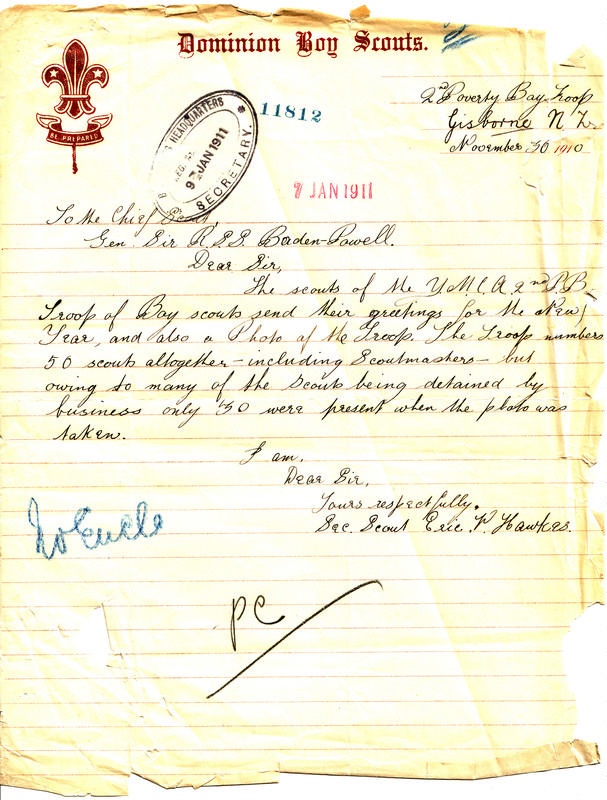 Dominion Boy Scouts.
BE PREPARED
HEADQUARTERS
9 JAN 1911
SECRETARY.
11812
2nd Poverty Bay Troop
Gisborne N.Z.
November 30 1910
7 JAN 1911
To the Chief Scout,
Gen. Sir R.S.S. Baden-Powell.
Dear Sir,
The scouts of the Y.M.C.A. 2nd P.B.
Troop of Boy scouts send their greetings for the New
Year, and also a Photo of the Troop. The Troop numbers
50 scouts altogether - including Scoutmasters - but
owing to many of the scouts being detained by
business only 30 were present when the photo was
taken.
I am.
Dear Sir,
Yours respectfully.
Sec. Scout Eric P. Hawkes.
No Encls
PC